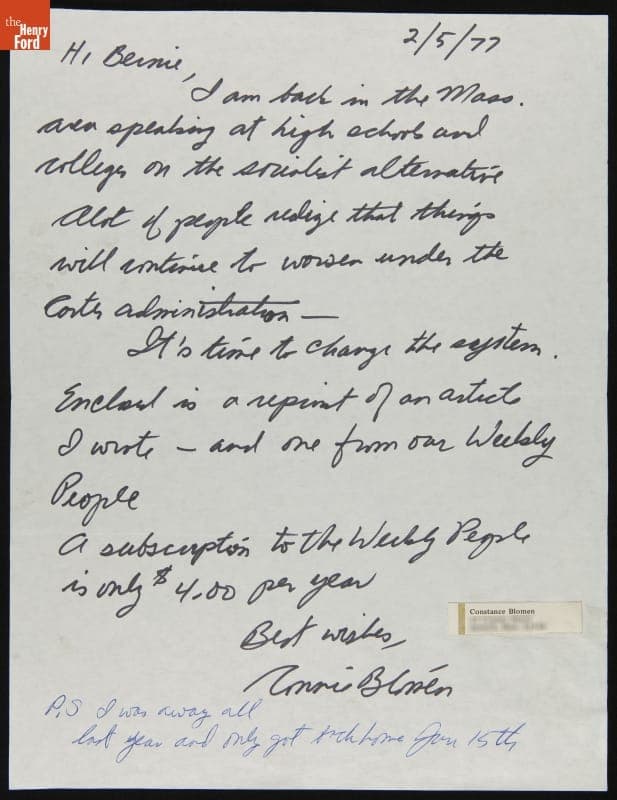 the
Henry
Ford
2/5/77
Hi Bernie,
I am back in the Mass.
area speaking at high schools and
colleges on the socialist alternative
Alot of people realize that things
will continue to worsen under the
Carter administration —
It's time to change the system.
Enclosed is a reprint of an article
I wrote — and one from our Weekly
People
A subscription to the Weekly People
is only $4.00 per year
Best wishes,
Connie Blomen
Constance Blomen
P.S I was away all
last year and only got back home Jan 15th